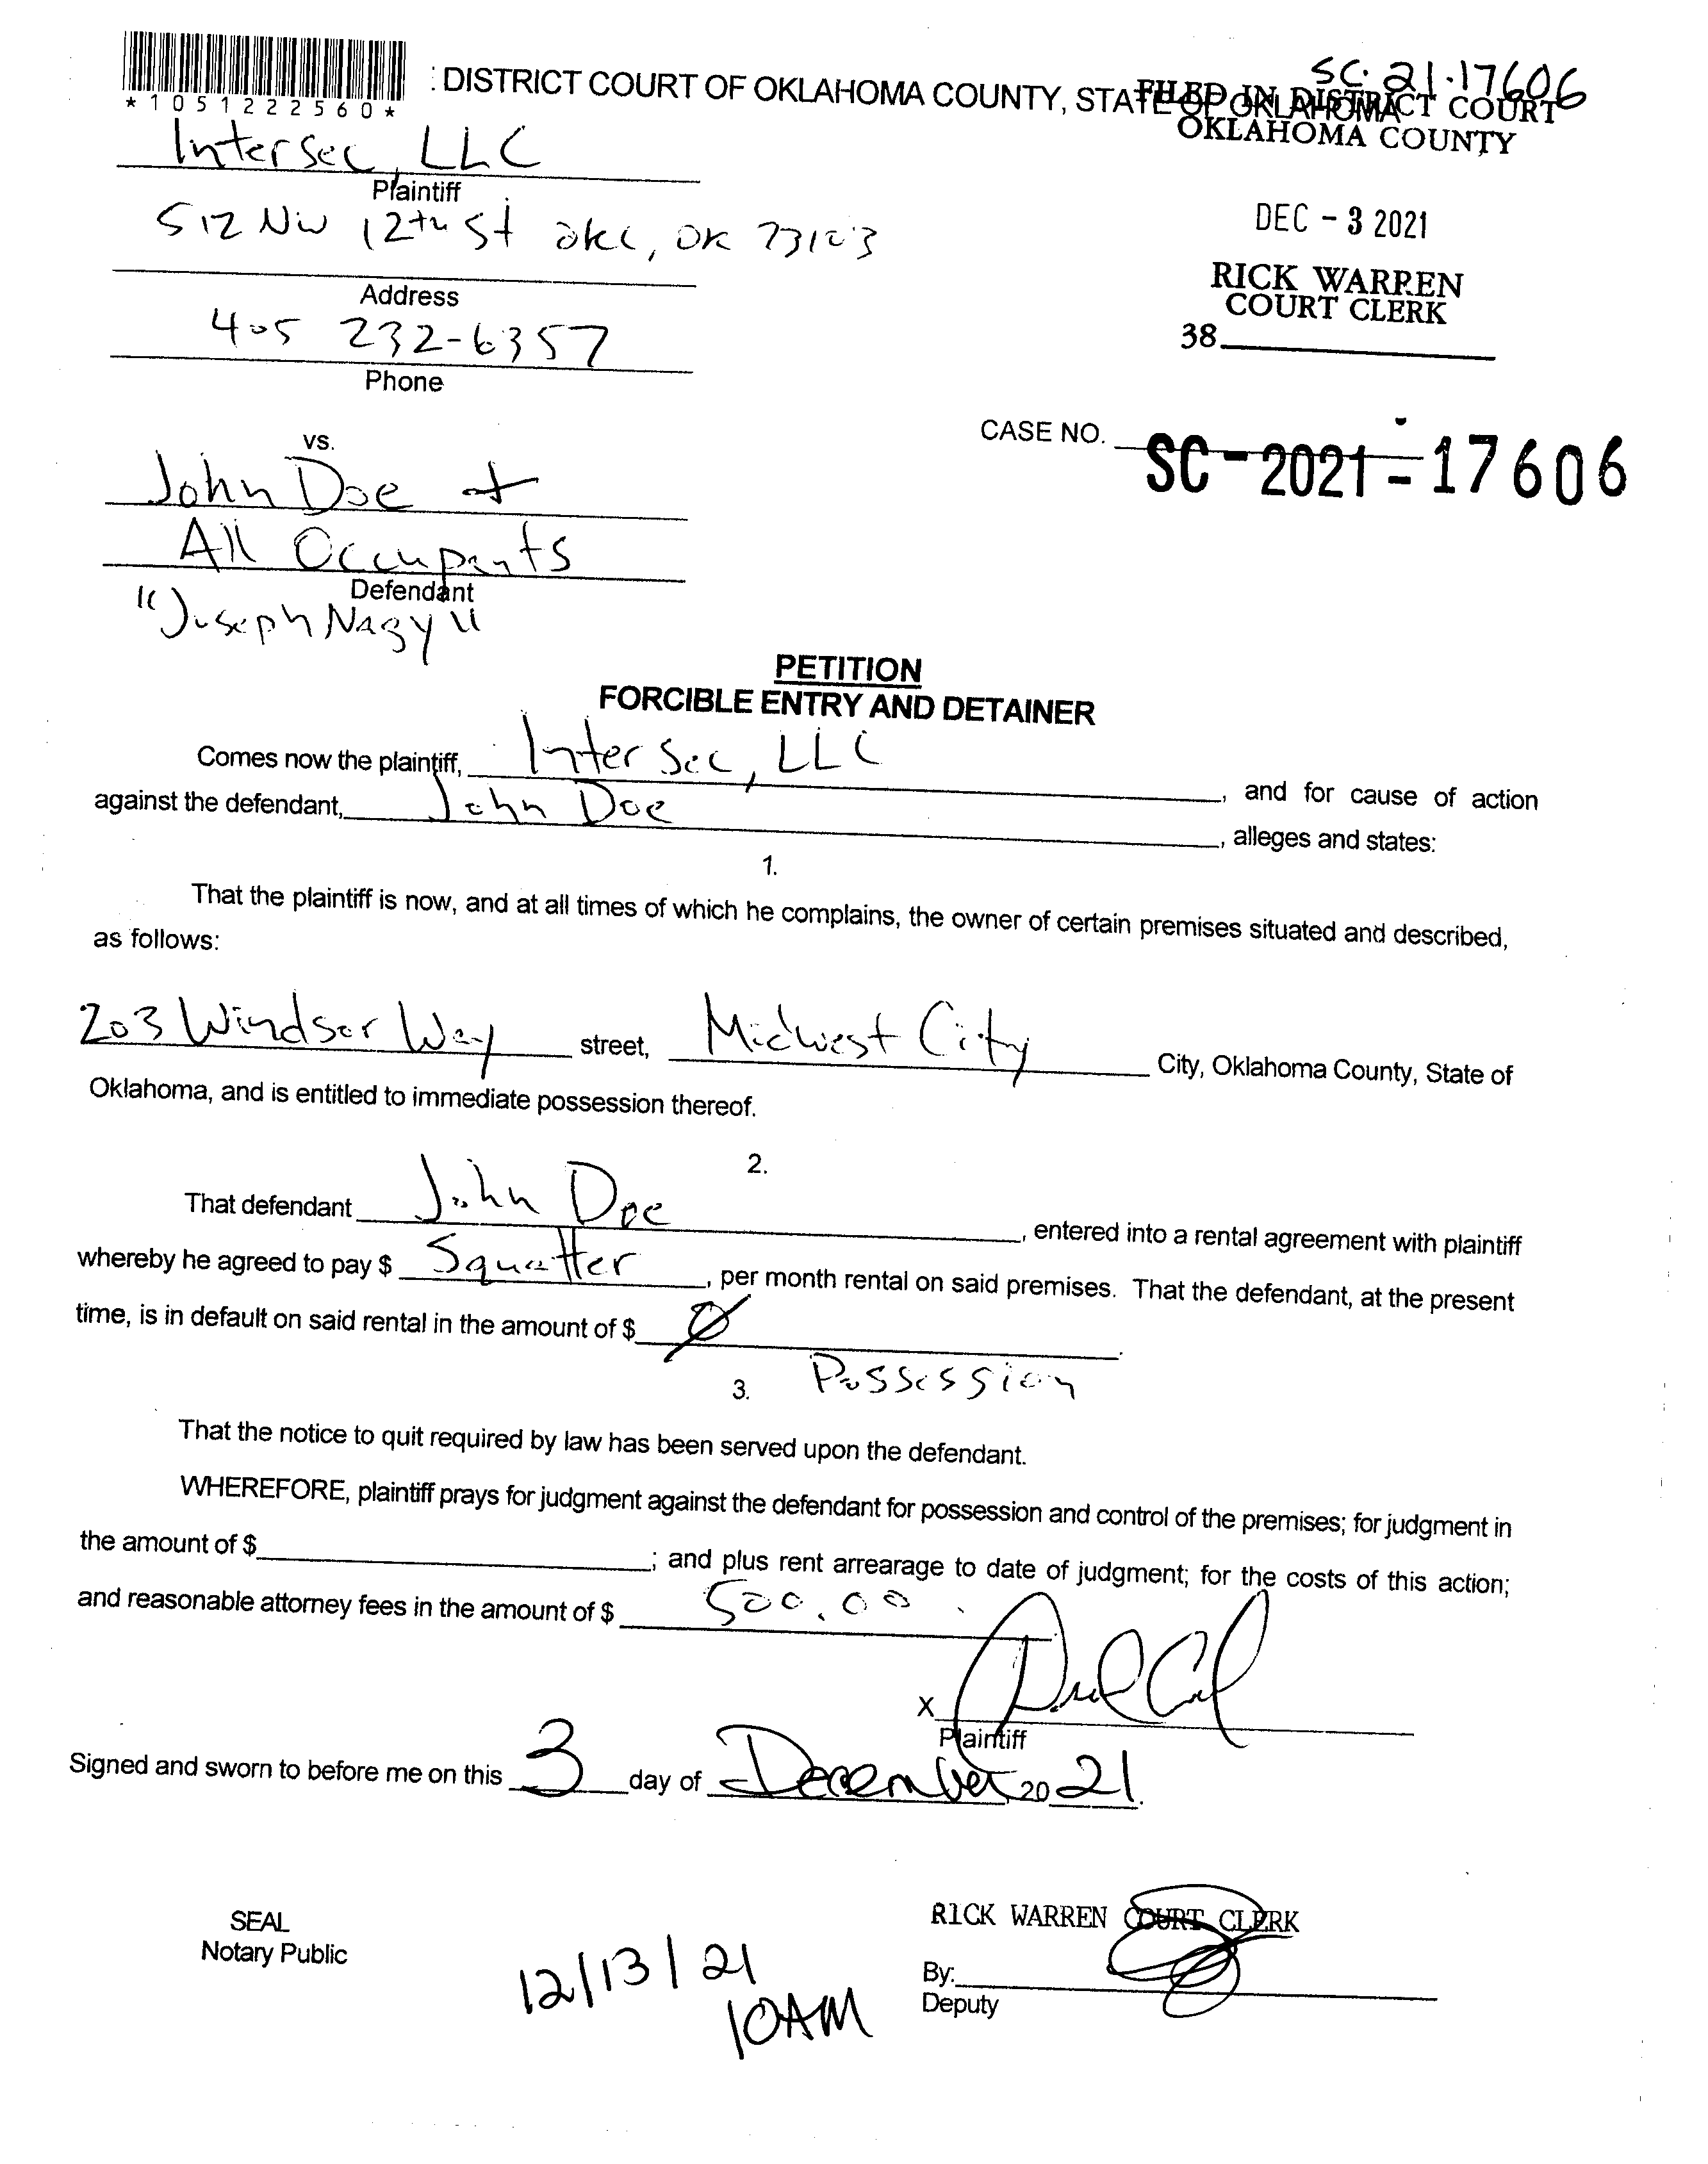 *1051222560*
: DISTRICT COURT OF OKLAHOMA COUNTY, STATE OF OKLAHOMA
SC-21-17606
FILED IN DISTRICT COURT
OKLAHOMA COUNTY
DEC - 3 2021
RICK WARREN
COURT CLERK
38
Intersec, LLC
Plaintiff
512 NW 12th St OKC, OK 73103
Address
405 232-6357
Phone
vs.
CASE NO. SC-2021-17606
John Doe +
All Occupants
Defendant
"Joseph Nagy"
PETITION
FORCIBLE ENTRY AND DETAINER
Comes now the plaintiff, Inter Sec, LLC, and for cause of action
against the defendant, John Doe, alleges and states:
1.
That the plaintiff is now, and at all times of which he complains, the owner of certain premises situated and described,
as follows:
203 Windsor Way street, Midwest City City, Oklahoma County, State of
Oklahoma, and is entitled to immediate possession thereof.
2.
That defendant John Doe, entered into a rental agreement with plaintiff
whereby he agreed to pay $ Squatter, per month rental on said premises. That the defendant, at the present
time, is in default on said rental in the amount of $ Ø.
3. Possession
That the notice to quit required by law has been served upon the defendant.
WHEREFORE, plaintiff prays for judgment against the defendant for possession and control of the premises; for judgment in
the amount of $; and plus rent arrearage to date of judgment; for the costs of this action;
and reasonable attorney fees in the amount of $ 500.00.
X
Plaintiff
Signed and sworn to before me on this 3 day of December, 20 21.
SEAL
Notary Public
RICK WARREN COURT CLERK
By:
Deputy
12/13/21
10AM